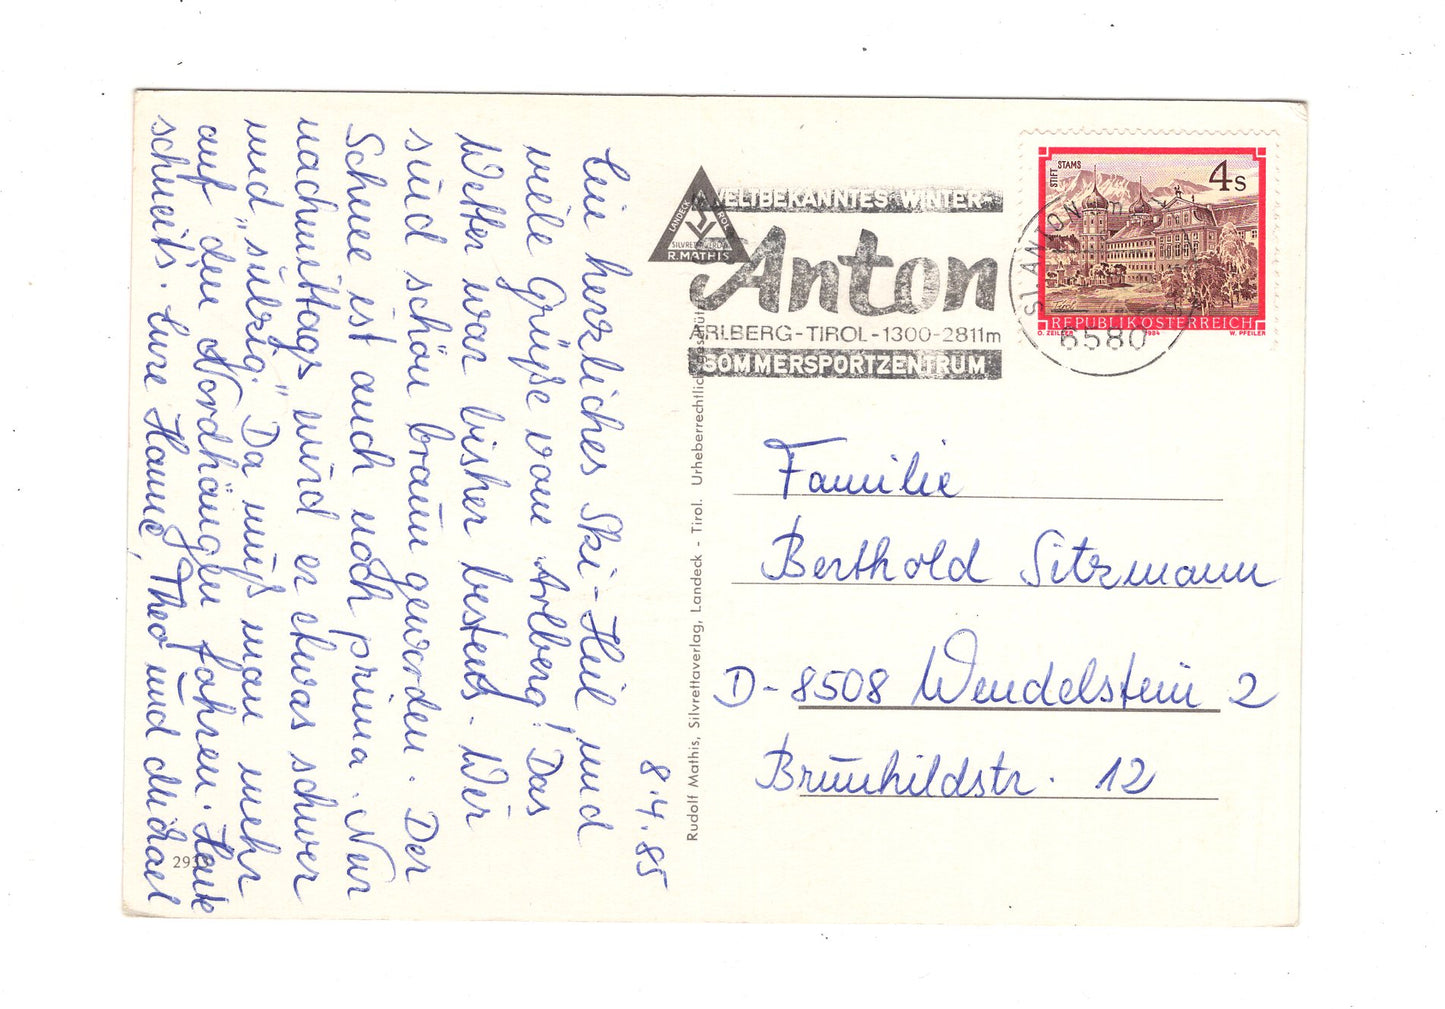 8.4.85
Ein herzliches Ski-Heil und
viele Grüße vom Arlberg! Das
Wetter war bisher bestens. Wir
sind schön braun geworden. Der
Schnee ist auch noch prima. Nur
nachmittags wird er etwas schwer
und "sülzig." Da muß man mehr
auf den Nordhängen fahren. Heute
schneits. Eure Hanne, Theo und Michael
293
LANDECK TIROL
SILVRETTAVERLAG
R. MATHIS
Rudolf Mathis, Silvrettaverlag, Landeck - Tirol. Urheberrechtlich geschützt
WELTBEKANNTES WINTER-
Anton
ARLBERG-TIROL-1300-2811m
SOMMERSPORTZENTRUM
ST. ANTON
6580
STIFT STAMS
4s
Tirol
REPUBLIK ÖSTERREICH
O. ZEILLER 1984 W. PFEILER
Familie
Berthold Sitzmann
D-8508 Wendelstein 2
Brünhildstr. 12